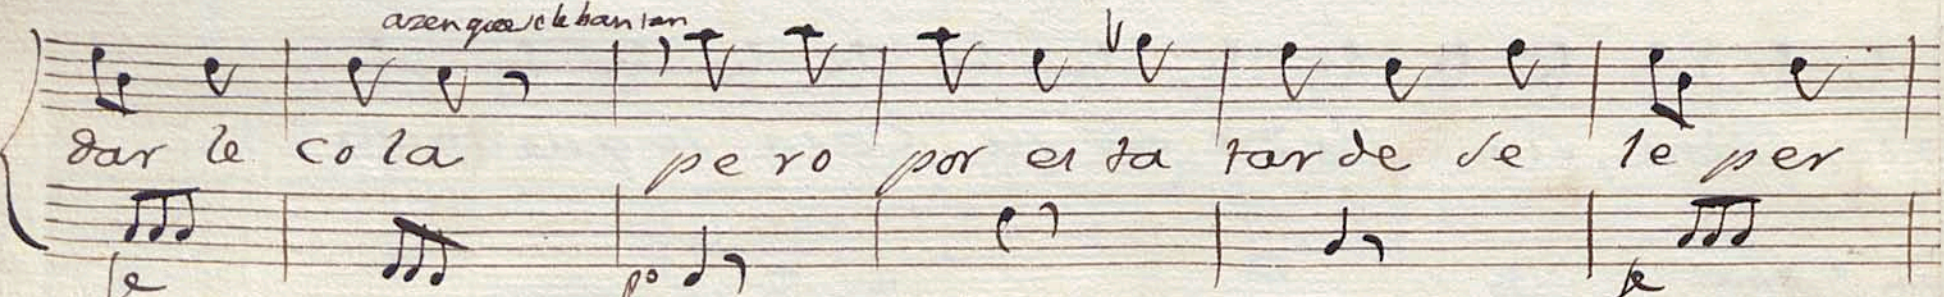 azen que se le ban
dar le co la pe ro por esta tar de se le per
fe po fe